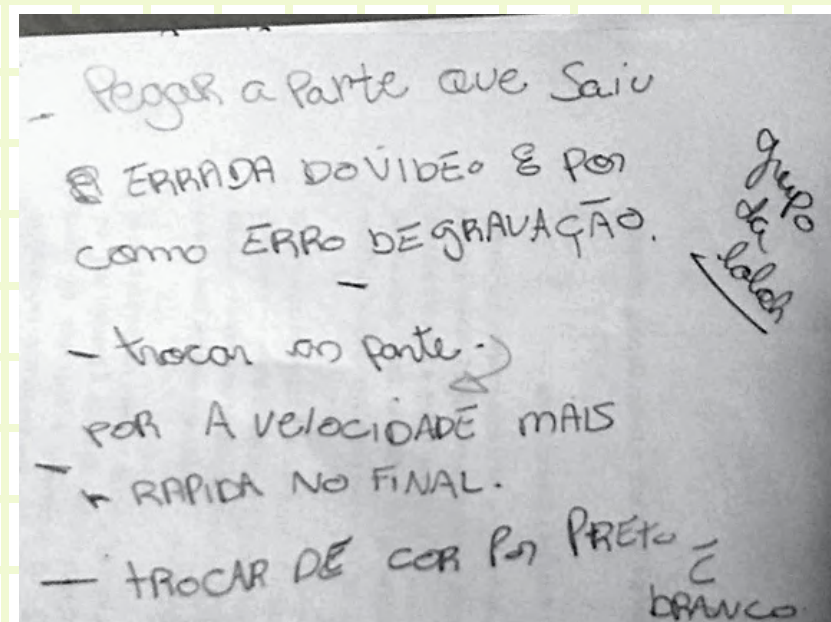 - Pegar a parte que Saiu
ERRADA DO VIDEO E por
como ERRO DE gRAVAÇÃO.
- trocar as parte.
POR A VELOCIDADE MAIS
- RAPIDA NO FINAL.
- tROCAR DE COR Por PREto E
bRANCO
grupo
da